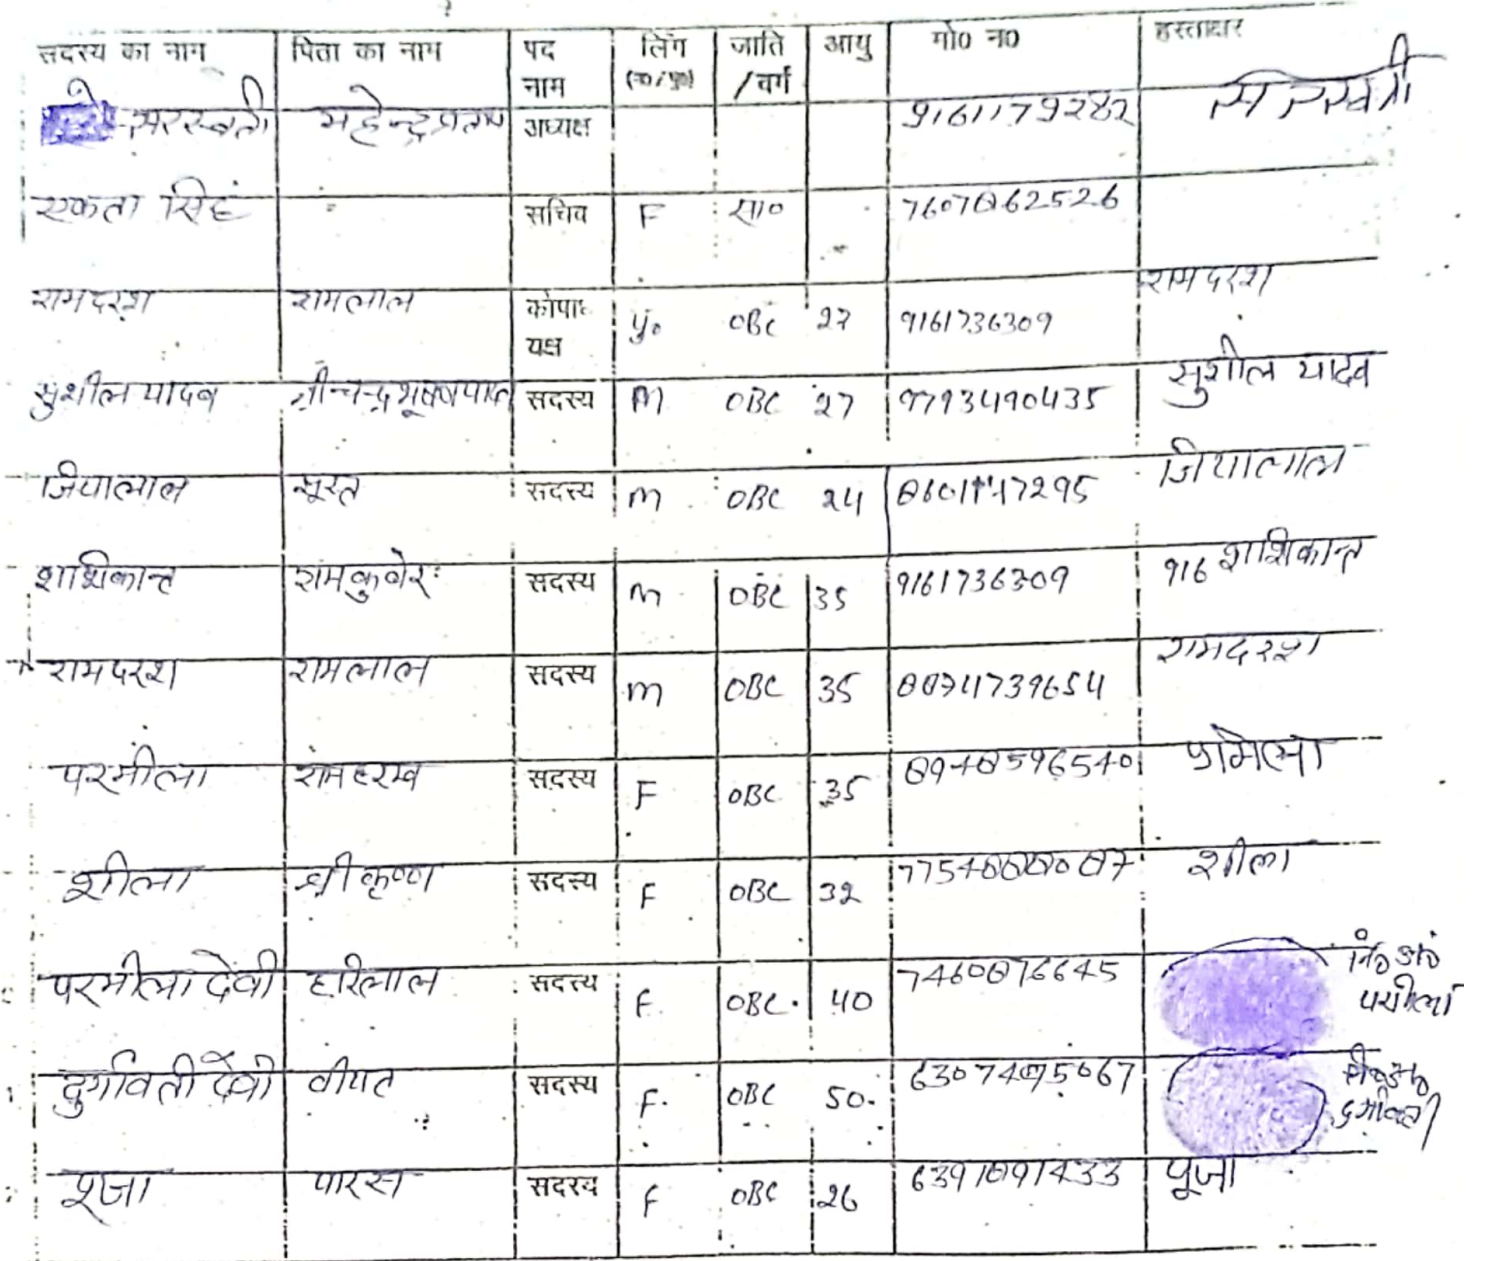 सदस्य का नाम पिता का नाम पद नाम लिंग (म०/पु०) जाति / वर्ग आयु मो० न० हस्ताक्षर
सरस्वती महेन्द्र प्रताप अध्यक्ष 9161179282 सरस्वती
एकता सिंह सचिव F सा० 7607862526
रामदरश रामलाल कोषाध्यक्ष पु० OBC 27 9161736309 रामदरश
सुशील यादव सदस्य M OBC 27 9793490435 सुशील यादव
जियालाल सूरत सदस्य M OBC 24 जियालाल
शशिकान्त रामकुबेर सदस्य M OBC 35 9161736309 916 शशिकान्त
रामदरश रामलाल सदस्य M OBC 35 रामदरश
परमीला सदस्य F OBC 35 8948596540
शीला श्री कृष्ण सदस्य F OBC 32 शीला
परमीला देवी हरिलाल सदस्य F OBC 40 7460876645 नि० अं० परमीला
दुर्गावती देवी सदस्य F. OBC 50. नि० अं० दुर्गावती
पूजा पारस सदस्य F OBC 26 6391891433 पूजा